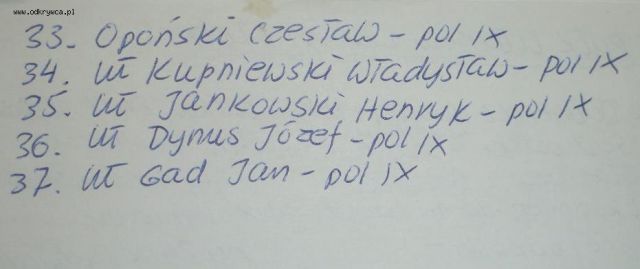 www.odkrywca.pl
33. Opoński Czesław - pol IX
34. uł Kupniewski Władysław - pol IX
35. uł Jankowski Henryk - pol IX
36. uł Dynus Józef - pol IX
37. uł Gad Jan - pol IX